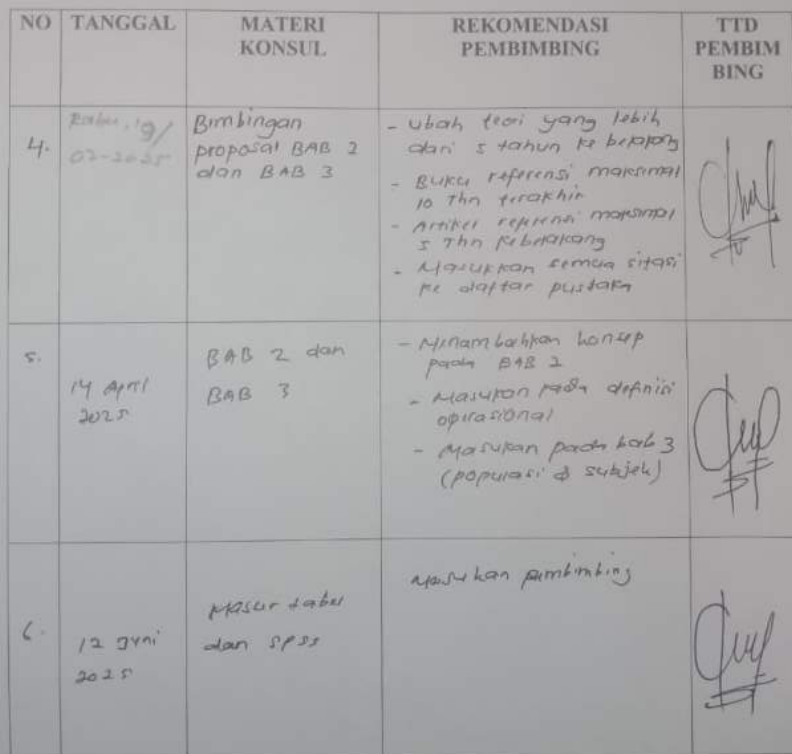 NO TANGGAL MATERI KONSUL REKOMENDASI PEMBIMBING TTD PEMBIM BING
4.
Rabu, 19/
02-2025
Bimbingan
proposal BAB 2
dan BAB 3
- Ubah teori yang lebih
dari 5 tahun ke belakang
- Buku referensi maksimal
10 Thn terakhir
- Artikel referensi maksimal
5 Thn kebelakang
- Masukkan semua sitasi
ke daftar pustaka
5.
14 April
2025
BAB 2 dan
BAB 3
- Menambahkan konsep
pada BAB 2
- Masukan pada definisi
operasional
- Masukan pada bab 3
(populasi & subjek)
6.
12 Juni
2025
tabel
dan SPSS
Masukan pembimbing